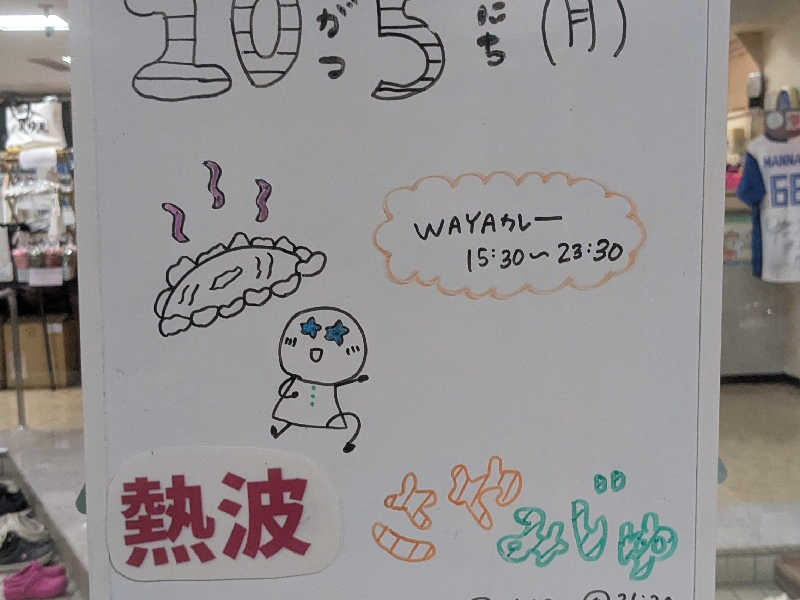 10がつ5にち(月)
WAYAカレー
15:30〜23:30
熱波
ささや
みじゅ
HANNA
66